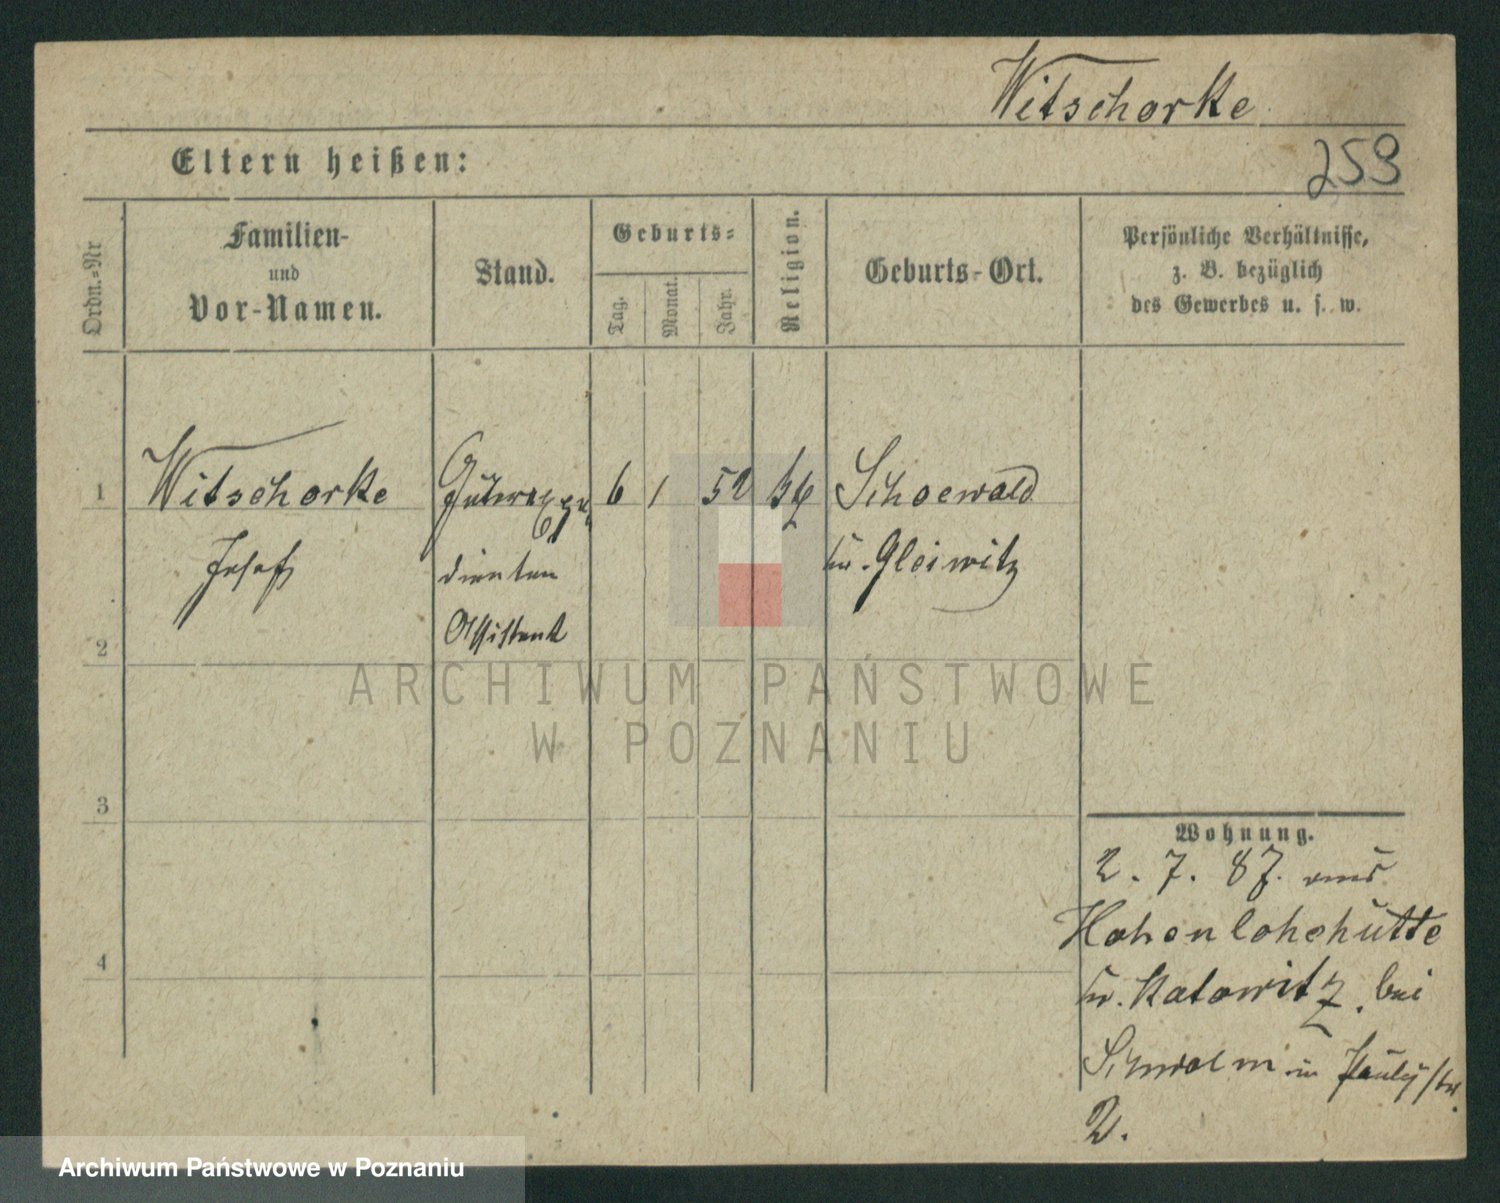 Witschorke
259
Eltern heißen:
Ordn.-Nr
Familien-
und
Vor-Namen.
Stand.
Geburts-
Tag.
Monat.
Jahr.
Religion.
Geburts-Ort.
Persönliche Verhältnisse,
z. B. bezüglich
des Gewerbes u. s. w.
1
Witschorke
Josef
Assistent
6
1
52
Schoewald
Kr. Gleiwitz
2
3
4
Wohnung.
2. 7. 87. aus
Hohenlohehütte
Kr. Katowitz, bei
2.
ARCHIWUM PAŃSTWOWE
W POZNANIU
Archiwum Państwowe w Poznaniu